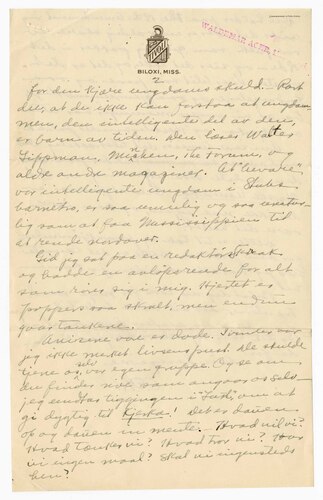 WALDEMAR AGER,
BILOXI, MISS.
2
for den kjære ungdoms skuld. Rart
det, at de ikke kan forstaa at ungdom
men, den intelligente del av den,
er barn av tiden. Den læser Walt
Lippman, Menken, the Forum, og
alde andre magaziner. At "bevare"
vor intelligente ungdom i
barnetro, er saa umulig og saa
som at faa Mississippien til
at rende nordover.
Gid jeg sat paa en redaktør
og hadde en avløpsrende for alt
som rører sig i mig. Hjertet er
proppers saa skralt, men endnu
gaar tankene.
Avisene vore er døde. Trinter var
jeg ikke meket livsens pust. De skulde
tjene os, vor egen gruppe. Og se om
du finder nok som angaar os selv
jeg endtas tiggingen i "Fad", om at
gi dygtig til Kjerka! Det er dauen
op og dauen in mente. Hvad vil vi?
Hvad tænker vi? Hvad tror vi? Har
vi ingen maal? Skal vi ingensteds
hen?